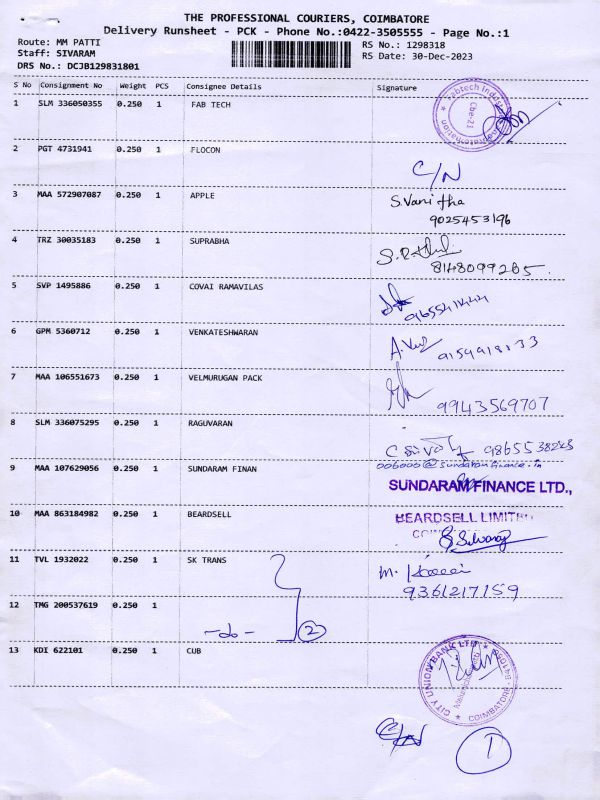 THE PROFESSIONAL COURIERS, COIMBATORE
Delivery Runsheet - PCK - Phone No.:0422-3505555 - Page No.:1
Route: MM PATTI
Staff: SIVARAM
DRS No.: DCJB129831801
RS No.: 1298318
RS Date: 30-Dec-2023
S No Consignment No Weight PCS Consignee Details Signature
1 SLM 336050355 0.250 1 FAB TECH
Cbe-21
2 PGT 4731941 0.250 1 FLOCON
C/N
3 MAA 572907087 0.250 1 APPLE S.Vanitha
9025453196
4 TRZ 30035183 0.250 1 SUPRABHA
8148099285
5 SVP 1495886 0.250 1 COVAI RAMAVILAS
6 GPM 5360712 0.250 1 VENKATESHWARAN
7 MAA 106551673 0.250 1 VELMURUGAN PACK
9943569707
8 SLM 336075295 0.250 1 RAGUVARAN
006000@sundaramfinance.in
9 MAA 107629056 0.250 1 SUNDARAM FINAN
SUNDARAM FINANCE LTD.,
10 MAA 863184982 0.250 1 BEARDSELL BEARDSELL LIMITED
11 TVL 1932022 0.250 1 SK TRANS
9361217159
12 TMG 200537619 0.250 1
-do- 2
13 KDI 622101 0.250 1 CUB
CITY UNION BANK LTD
COIMBATORE
1